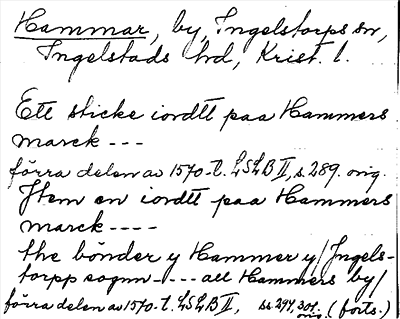 Hammar, by, Ingelstorps sn,
Ingelstads hd, Krist. l.
Ett sticke iordtt paa Hammers
marck ---
förra delen av 1570-t. LSLB II, s. 289. orig.
Item en iordtt paa Hammers
marck ----
the bönder y Hammer y/Ingels-
torpp sognn---- all Hammers by/
förra delen av 1570-t. LSLB II, ss 294, 301. (forts.)
orig.